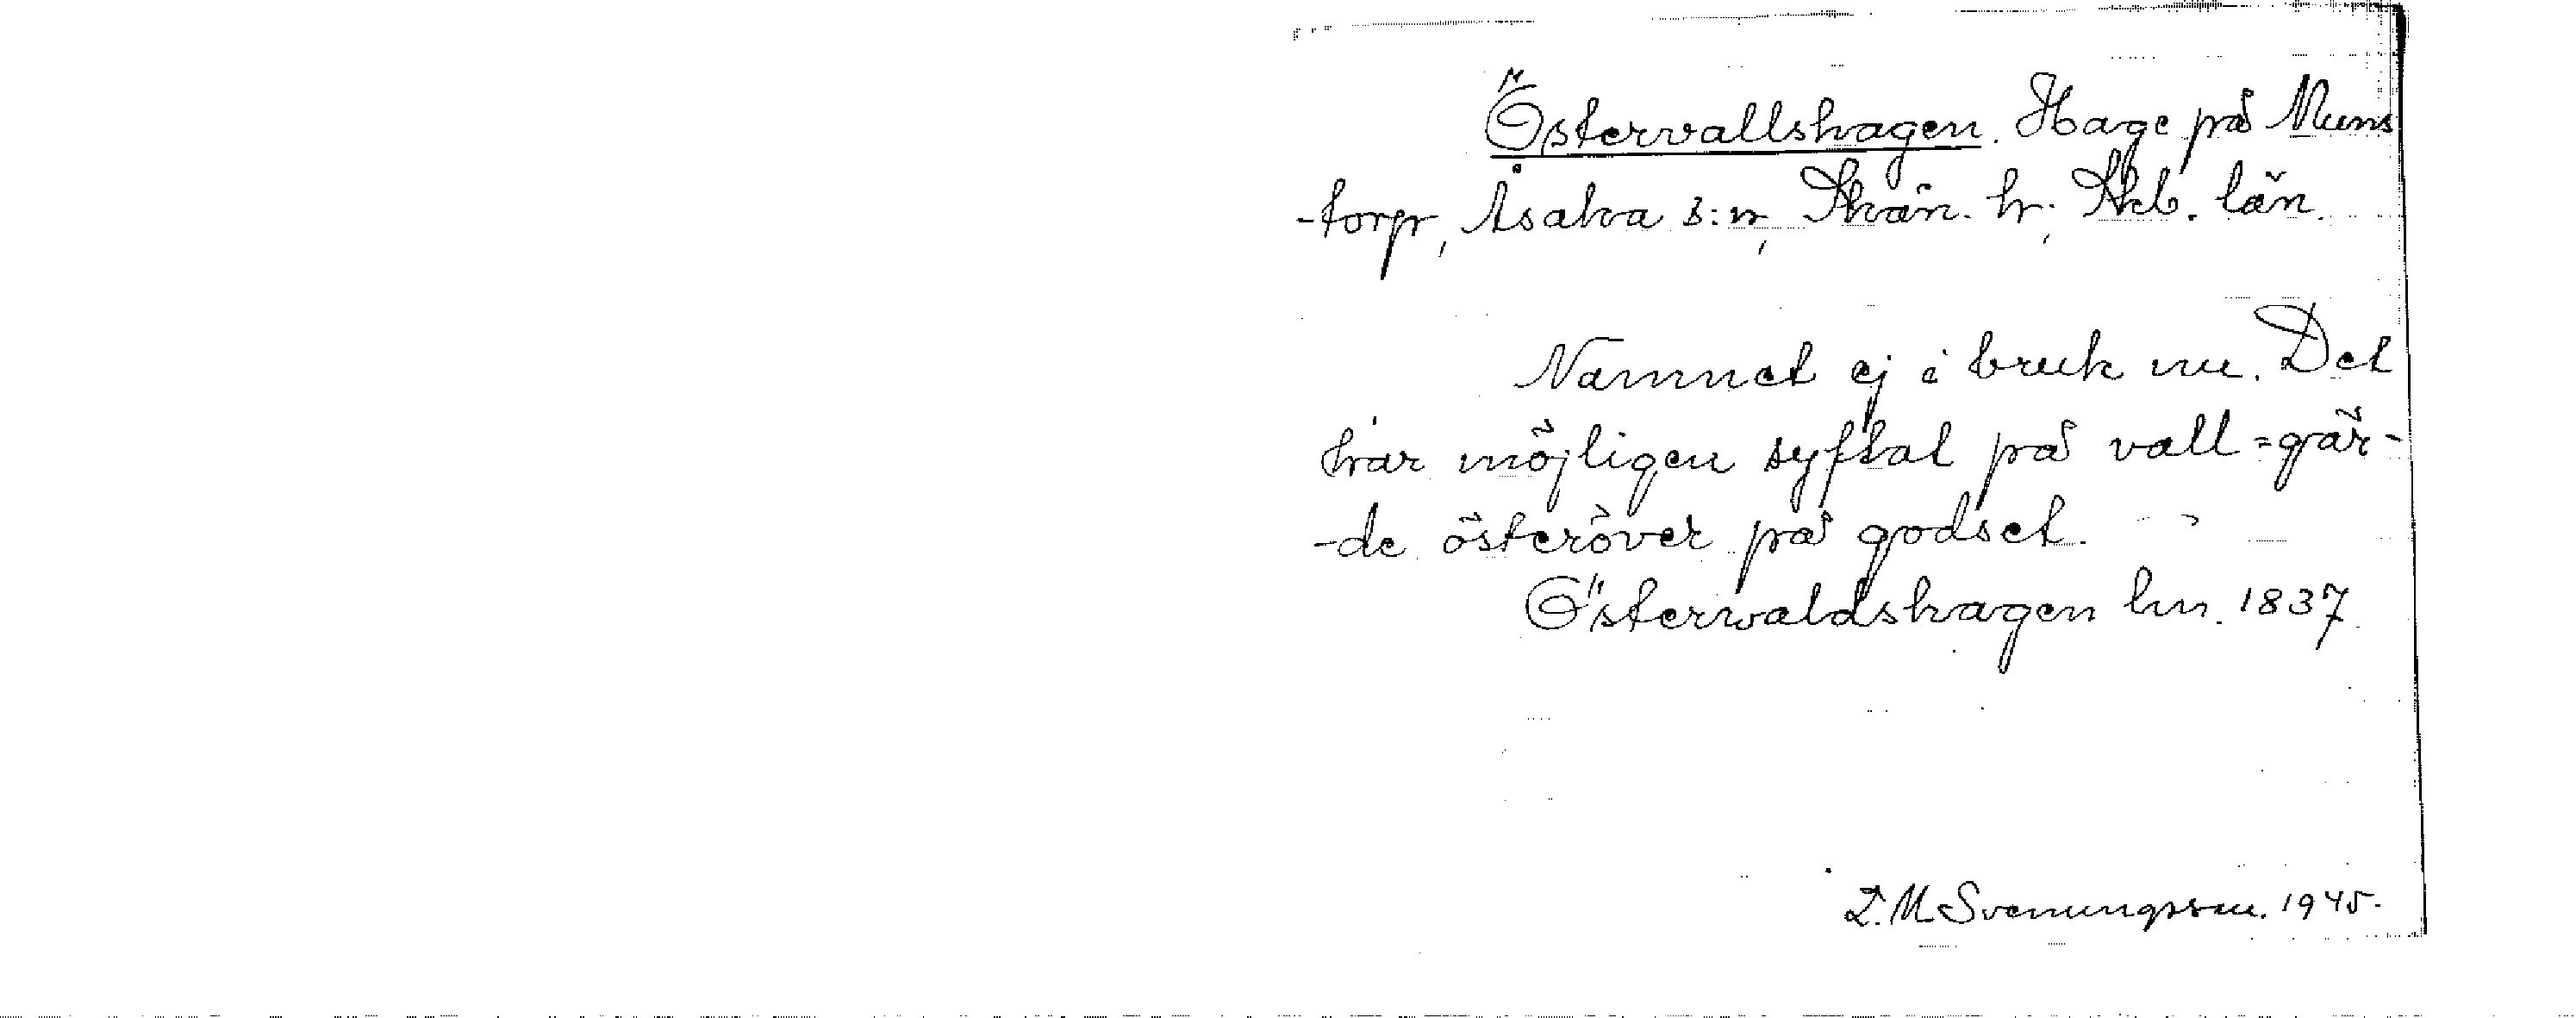 Östervallshagen. Hage på Muns
-torp, Åsaka s:n, Skån. hr. Skb. län.
Namnet ej i bruk nu. Det
har möjligen syftat på vall=gär-
-de österöver på godset.
Österwaldshagen hm. 1837
D. M. Svenungsson. 1945.